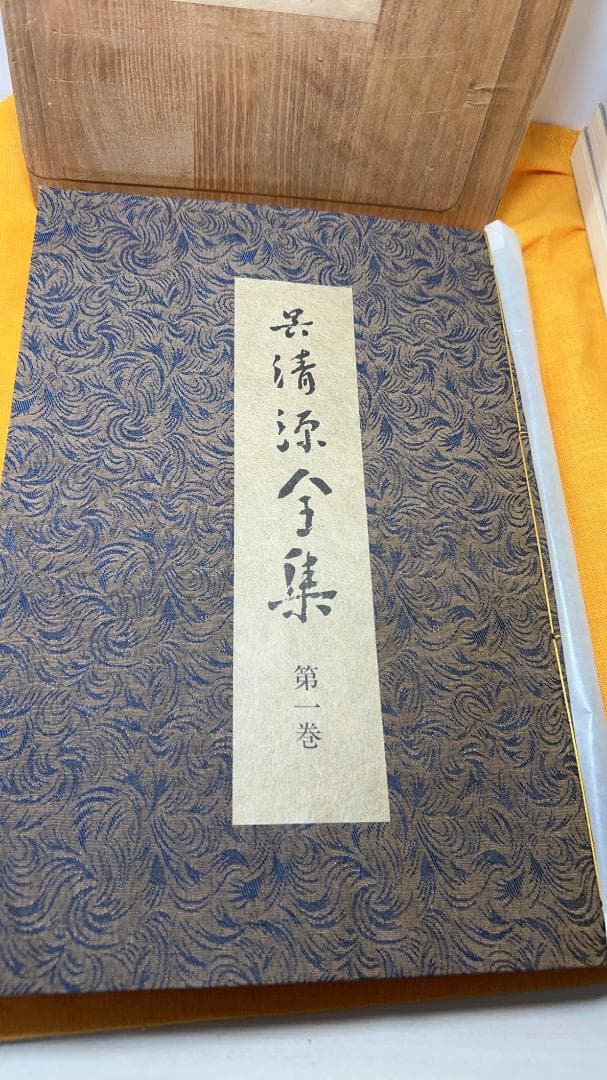 呉清源全集
第一巻